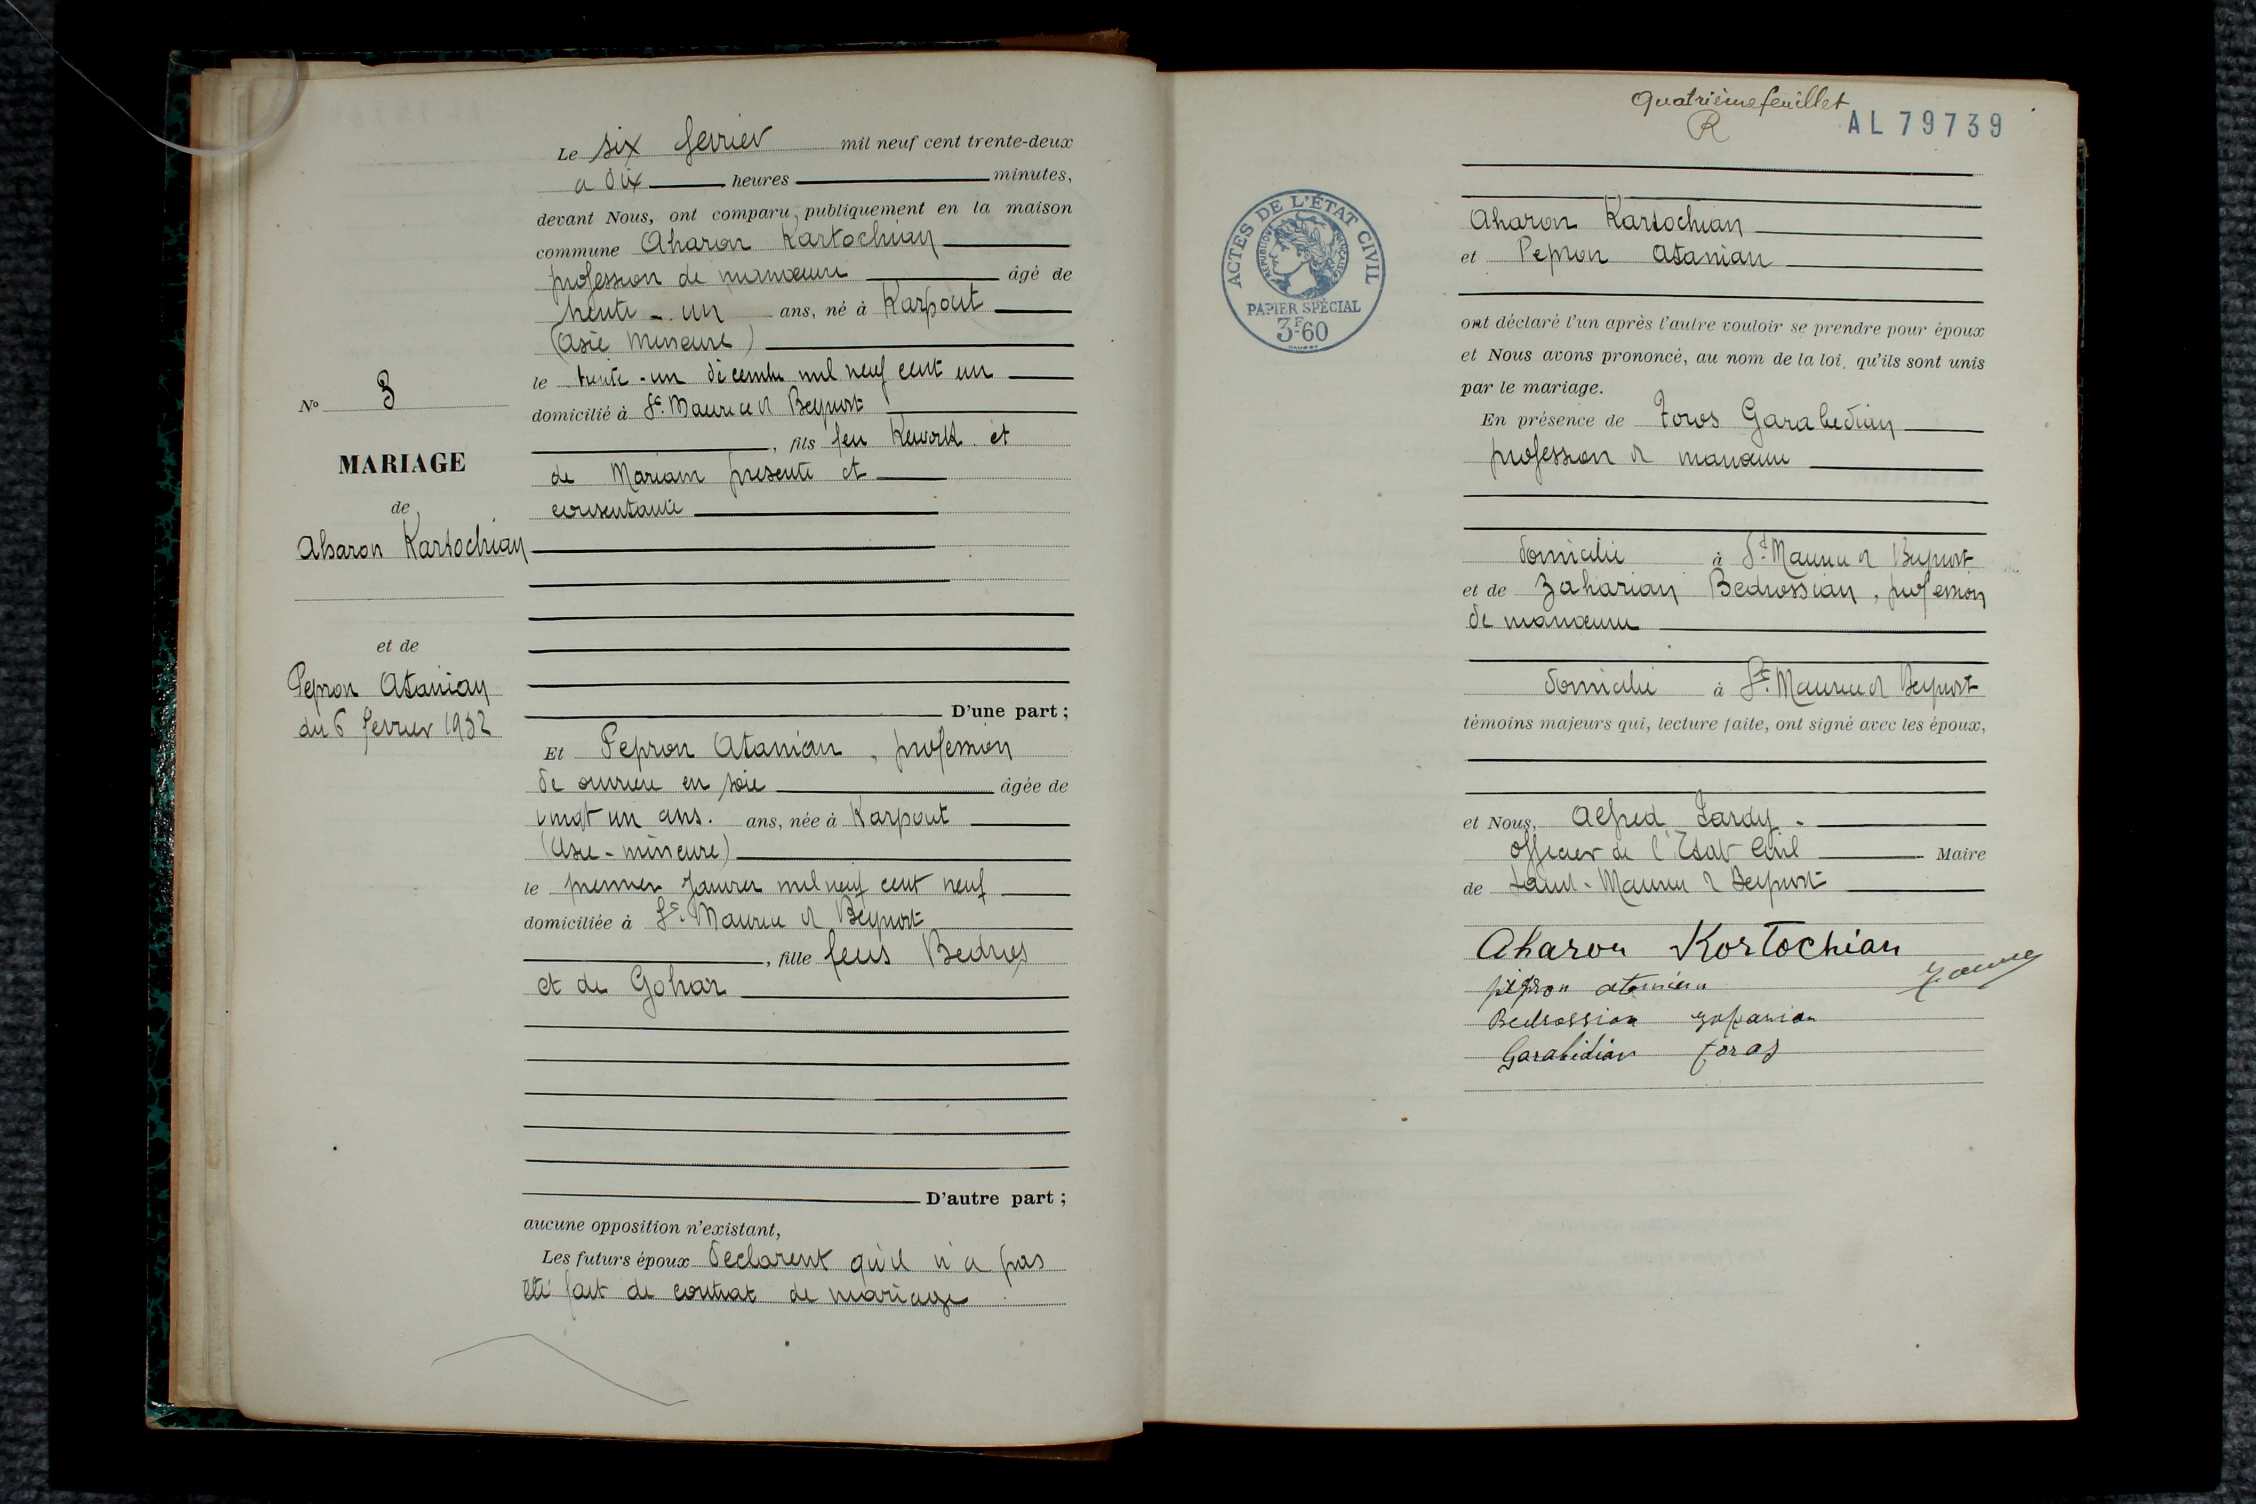 N° 3
MARIAGE
de
Aharon Kartochian
et de
Pepron Atanian
du 6 fevrier 1932
Le six fevrier mil neuf cent trente-deux
a dix heures minutes,
devant Nous, ont comparu publiquement en la maison
commune Aharon Kartochian
profession de manœuvre âgé de
trente-un ans, né à Karpout
(Asie Mineure)
le trente-un décembre mil neuf cent un
domicilié à St. Maurice d Beynost
, fils feu Kework et
de Mariam presente et
consentante
D'une part ;
Et Pepron Atanian, profession
de ouvriere en soie âgée de
vingt un ans. ans, née à Karpout
(Asie-mineure)
le premier Janvier mil neuf cent neuf
domiciliée à St. Maurice d Beynost
, fille feus Bedros
et de Gohar
D'autre part ;
aucune opposition n'existant,
Les futurs époux déclarent qu'il n'a pas
été fait de contrat de mariage
Quatrième feuillet
R
AL 79739
ACTES DE L'ÉTAT CIVIL
RÉPUBLIQUE FRANÇAISE
PAPIER SPÉCIAL
3F60
Aharon Kartochian
et Pepron Atanian
ont déclaré l'un après l'autre vouloir se prendre pour époux
et Nous avons prononcé, au nom de la loi, qu'ils sont unis
par le mariage.
En présence de Toros Garabedian
profession d manœuvre
domicilié à St. Maurice d Beynost
et de Zaharian Bedrossian, profession
de manœuvre
domicilié à St. Maurice d Beynost
témoins majeurs qui, lecture faite, ont signé avec les époux,
et Nous, Alfred Lardy.
Officier de l'Etat Civil Maire
de Saint-Maurice d Beynost
Aharon Kortochian
pépron atanian
Bedrossian zaparian
Garabidian toras